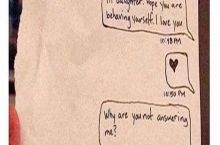 hi daughter. hope you are
behaving yourself. I love you
10:48 PM
10:50 PM
Why are you not answering
me?